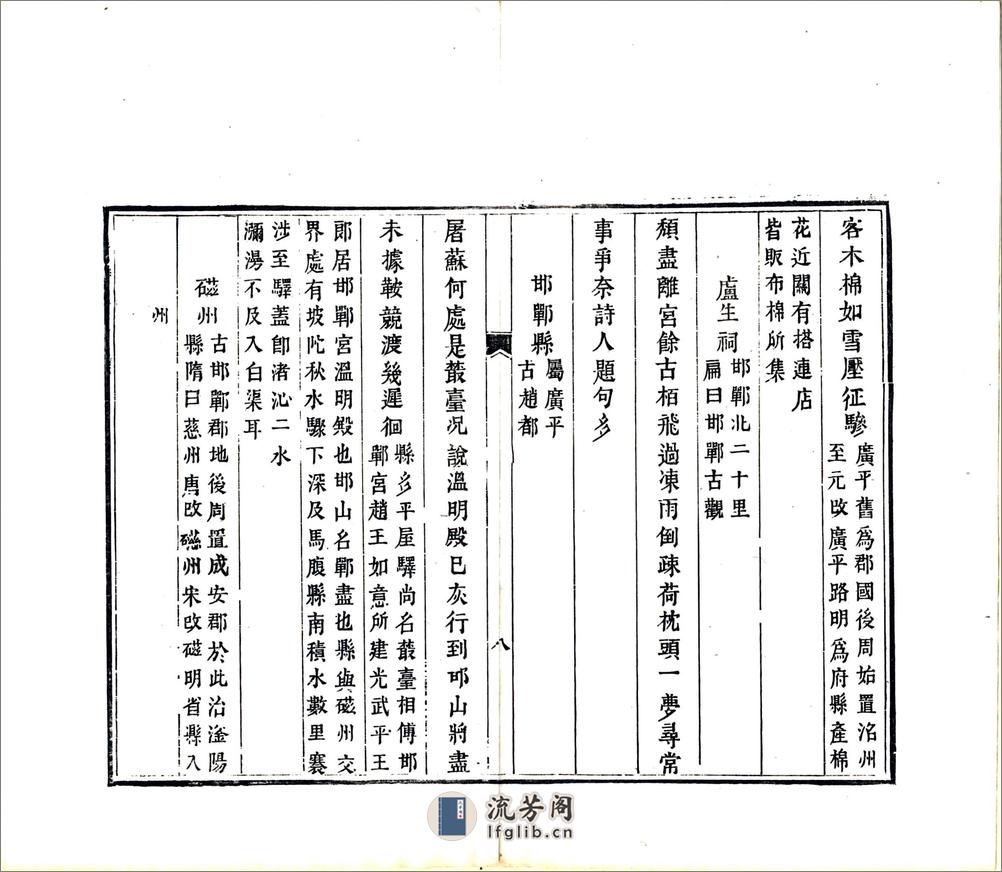 客木棉如雪壓征驂廣平舊為郡國後周始置洺州
至元改廣平路明為府縣產棉
花近關有搭連店
皆販布棉所集
盧生祠邯鄲北二十里
扁曰邯鄲古觀
頹盡離宮餘古栢飛過凍雨倒疎荷枕頭一夢尋常
事爭奈詩人題句多
邯鄲縣屬廣平
古趙都
八
屠蘇何處是叢臺况說溫明殿已灰行到邯山將盡
未據鞍競渡幾遲徊縣多平屋驛尚名叢臺相傳邯
鄲宮趙王如意所建光武平王
郎居邯鄲宮溫明殿也邯山名鄲盡也縣與磁州交
界處有坡陀秋水驟下深及馬腹縣南積水數里褰
涉至驛蓋卽渚沁二水
瀰湯不及入白渠耳
磁州古邯鄲郡地後周置成安郡於此治滏陽
縣隋曰慈州唐改磁州宋改磁明省縣入
州
流芳阁
lfglib.cn